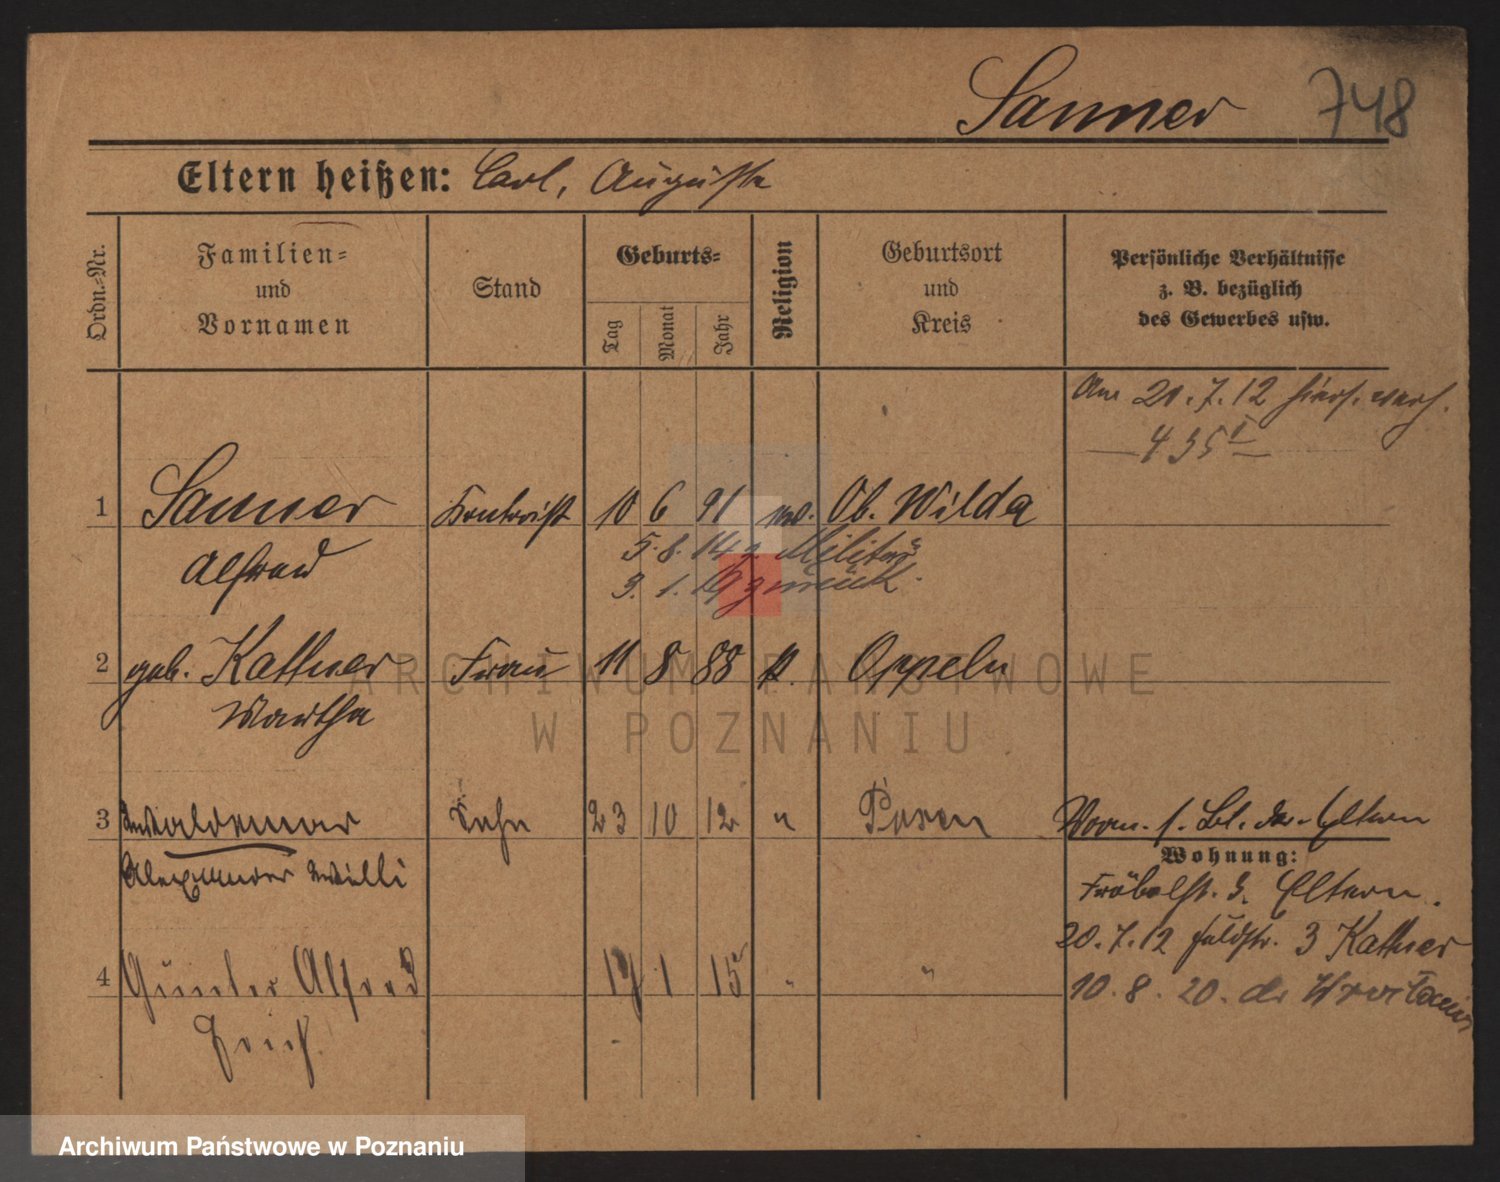 Sanner 748
Eltern heißen: Carl, Auguste
Ordn.-Nr.
Familien=
und
Vornamen
Stand
Geburts=
Tag
Monat
Jahr
Religion
Geburtsort
und
Kreis
Persönliche Verhältnisse
z. B. bezüglich
des Gewerbes usw.
Am 20.7.12 hiers. verh.
435 I
1 Sanner Kontorist 10 6 91 ev. Ob. Wilda
Alfred
5.8.14 z. Militär
3.1.19 zurück.
2 geb. Kattner Frau 11 8 88 k. Oppeln
Martha
3 Waldemar Sohn 23 10 12 " Posen
Alexander Willi
Vorm. s. Bl. der Eltern
Wohnung:
Fröbelst. 3. Eltern.
20.7.12 Feldstr. 3 Kattner
4 Günter Alfred 17 1 15 " "
Erich.
10.8.20. do Wrocławia
ARCHIWUM PAŃSTWOWE
W POZNANIU
Archiwum Państwowe w Poznaniu